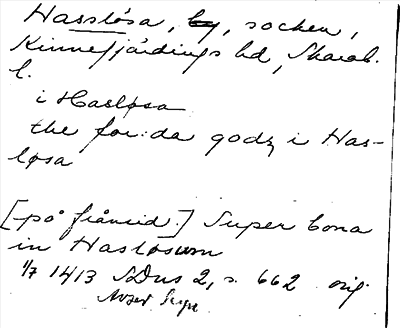 Hasslösa, by, socken,
Kinnefjärdings hd, Skarab.
l.
i Hasløsa
the for:da godz i Has-
løsa
[på frånsid.] Super bona
in Hasløsum
1/7 1413 SDns 2, s. 662 orig.